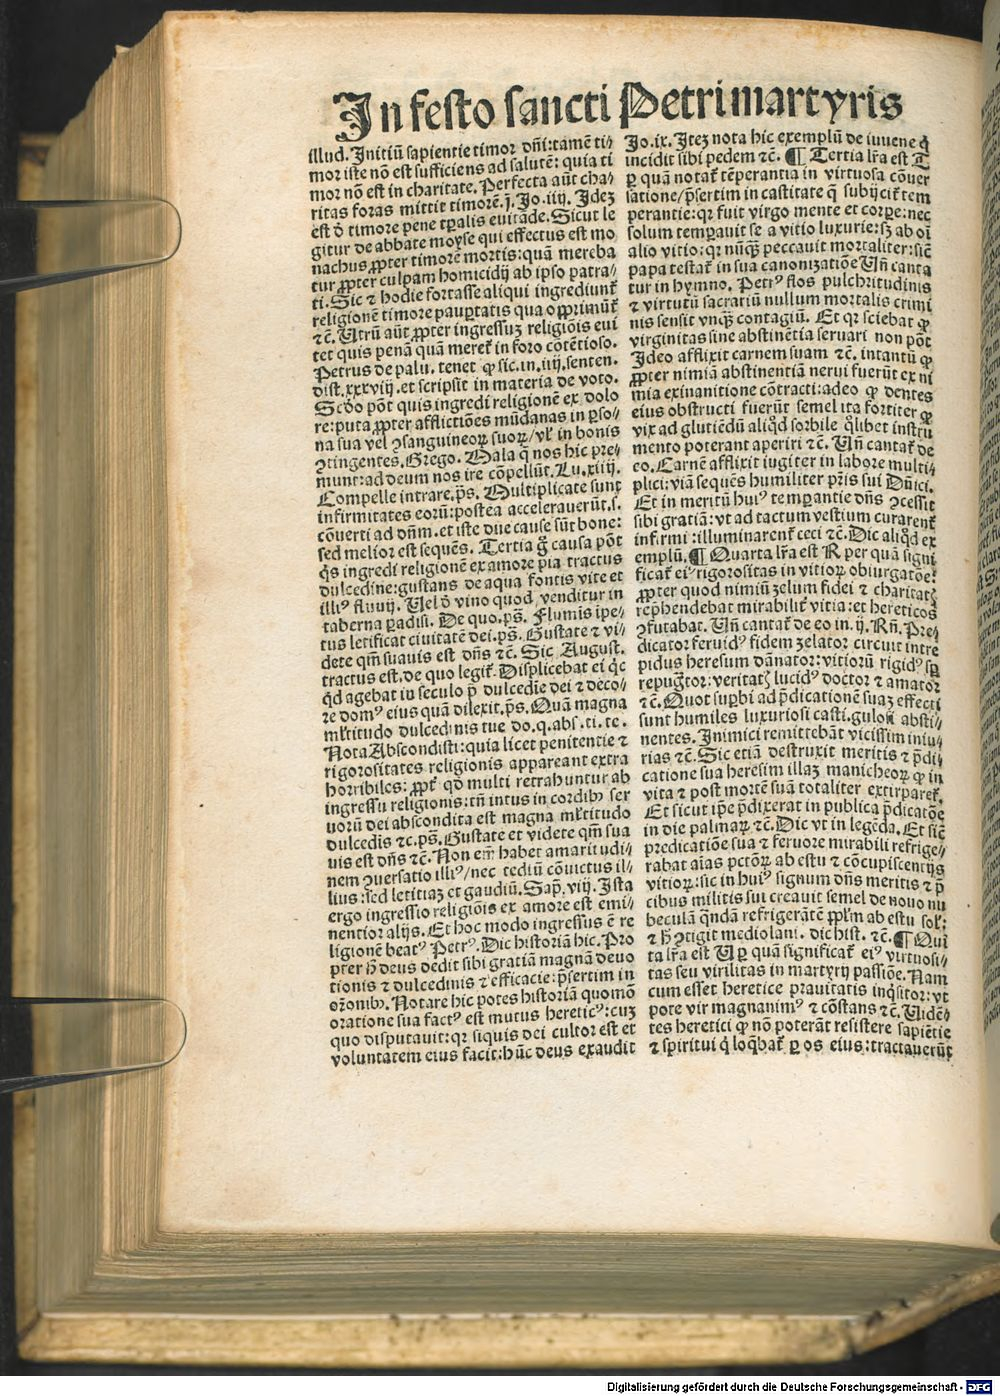 In festo sancti Petri martyris
illud. Initiū sapientie timor dn̄i: tamē ti⸗
mor iste nō est sufficiens ad salutē: quia ti
mor nō est in charitate. Perfecta aūt cha⸗
ritas foras mittit timorē. j. Jo. iiij. Idez
est d̄ timore pene tꝑalis euitāde. Sicut le
gitur de abbate moyse qui effectus est mo
nachus ꝓpter timorē mortis: quā mereba
tur ꝓpter culpam homicidij ab ipso patra⸗
ti. Sic ⁊ hodie fortasse aliqui ingrediunt᷑
religionē timore pauꝑtatis qua opprimūt᷑
⁊c̄. Utrū aūt ꝓpter ingressuz religiōis eui
tet quis penā quā meret᷑ in foro cōtētioso.
Petrus de palu. tenet ꝙ sic. in. iiij. senten.
dist. xxxviij. et scripsit in materia de voto.
Scd̄o pōt quis ingredi religionē ex dolo
re: puta ꝓpter afflictiōes mūdanas in ꝑso⸗
na sua vel ꝯsanguineoꝝ suoꝝ/ vl᷑ in bonis
ꝯtingentes. Grego. Mala q̄ nos hic pre⸗
munt: ad deum nos ire cōpellūt. Lu. xiiij.
Compelle intrare. ps̄. Multiplicate sunt
infirmitates eorū: postea accelerauerūt. s.
cōuerti ad dn̄m. et iste due cause sūt bone:
sed melior est sequēs. Tertia g̊ causa pōt
q̇s ingredi religionē ex amore pia tractus
dulcedine: gustans de aqua fontis vite et
illiꝰ fluuij. Uel d̄ vino quod venditur in
taberna ꝑadisi. De quo. ps̄. Flumis ipe⸗
tus letificat ciuitatē dei. ps̄. Gustate ⁊ vi⸗
dete qm̄ suauis est dn̄s ⁊c̄. Sic August.
tractus est. de quo legit᷑. Displicebat ei q̇c
qd̄ agebat in seculo p̄ dulcedie dei ⁊ deco⸗
re domꝰ eius quā dilexit. ps̄. Quā magna
ml̄titudo dulcedinis tue do. q. abs. ti. te.
Nota Abscondisti: quia licet penitentie ⁊
rigorositates religionis appareant extra
horribiles: ꝓpt᷑ qd̄ multi retrahuntur ab
ingressu religionis: tn̄ intus in cordibꝫ ser
uorū dei abscondita est magna ml̄titudo
dulcedīs ⁊c. ps̄. Gustate et videte qm̄ sua
uis est dn̄s ⁊c̄. Non em̄ habet amaritudi⸗
nem ꝯuersatio illiꝰ/ nec tediū cōuictus il⸗
lius: sed letitiaz et gaudiū. Sap̄. viij. Ista
ergo ingressio religiōis ex amore est emi⸗
nentior alijs. Et hoc modo ingressus ē re
ligionē beatꝰ Petrꝰ. Dic historiā hic. Pro
pter h̄ deus dedit sibi gratiā magnā deuo
tionis ⁊ dulcedinis ⁊ efficacie: p̄sertim in
or̄onibꝫ. Notare hic potes historiā quomō
oratione sua factꝰ est mutus hereticꝰ: cuz
quo disputauit: qꝛ siquis dei cultor est et
voluntatem eius facit: hūc deus exaudit
Jo. ix. Itez nota hic exemplū de iuuene q̇
incidit sibi pedem ⁊c̄. ¶ Tertia lr̄a est T
ꝑ quā notat᷑ tēperantia in virtuosa cōuer
satione/ p̄sertim in castitate q̄ subijcit᷑ tem
perantie: qꝛ fuit virgo mente et corꝑe: nec
solum temꝑauit se a vitio luxurie: sꝫ ab oī
alio vitio: qꝛ nūq̄ꝫ peccauit mortaliter: sic̄
papa testat᷑ in sua canonizatiōe Un̄ canta
tur in hymno. Petrꝰ flos pulchritudinis
⁊ virtutū sacratiū nullum mortalis crimi
nis sensit vnq̄ꝫ contagiū. Et qꝛ sciebat ꝙ
virginitas sine abstinētia seruari non pōt
Ideo afflixit carnem suam ⁊c̄. intantū ꝙ
ꝓpter nimiā abstinentiā nerui fuerūt ex ni
mia exinanitione cōtracti: adeo ꝙ dentes
eius obstructi fuerūt semel ita fortiter ꝙ
vix ad glutiēdū aliq̇d sorbile q̊libet instru
mento poterant aperiri ⁊c̄. Un̄ cantat᷑ de
eo. Carnē afflixit iugiter in labore multi⸗
plici: viā sequēs humiliter pr̄is sui Dn̄ici.
Et in meritū huiꝰ temꝑantie dn̄s ꝯcessit
sibi gratiā: vt ad tactum vestium curarent᷑
infirmi: illuminarent᷑ ceci ⁊c̄. Dic aliq̇d ex
emplū. ¶ Quarta lr̄a est R per quā signi
ficat᷑ eiꝰ rigorositas in vitioꝝ obiurgatōe:
ꝓpter quod nimiū zelum fidei ⁊ charitatꝭ
rep̄hendebat mirabilit᷑ vitia: et hereticos
ꝯfutabat. Un̄ cantat᷑ de eo in. ij. Rn̄. Pre⸗
dicator feruidꝰ fidem zelator circuit intre
pidus heresum dānator: vitiorū rigidꝰ sꝑ
repugtor: veritatꝭ lucidꝰ doctor ⁊ amator
⁊c̄. Quot suꝑbi ad p̄dicationē suaz effecti
sunt humiles luxuriosi casti. gulosi absti⸗
nentes. Inimici remittebāt vicissim iniu⸗
rias ⁊c̄. Sic etiā destruxit meritis ⁊ p̄di⸗
catione sua heresim illaz manicheoꝝ ꝙ in
vita ⁊ post mortē suā totaliter extirparet᷑.
Et sicut ip̄e p̄dixerat in publica p̄dicatōe
in die palmaꝝ ⁊c̄. Dic vt in legēda. Et sic̄
predicatiōe sua ⁊ feruore mirabili refrige⸗
rabat aīas pctōꝝ ab estu ⁊ cōcupiscentijs
vitioꝝ: sic in huiꝰ signum dn̄s meritis ⁊ p̄
cibus militis sui creauit semel de nouo nu
beculā q̄ndā refrigerātē ppl̄m ab estu sol᷑:
⁊ h̄ ꝯtigit mediolani. dic hist. ⁊c̄. ¶ Quī
ta lr̄a est U ꝑ quā significat᷑ eiꝰ virtuosi⸗
tas seu virilitas in martyrij passiōe. Nam
cum esset heretice prauitatis inq̇sitor: vt
pote vir magnanimꝰ ⁊ cōstans ⁊c̄. Uidē⸗
tes heretici ꝙ nō poterāt resistere sapiētie
⁊ spiritui q̇ loq̄bat᷑ ꝑ os eius: tractauerūt
Digitalisierung gefördert durch die Deutsche Forschungsgemeinschaft - DFG